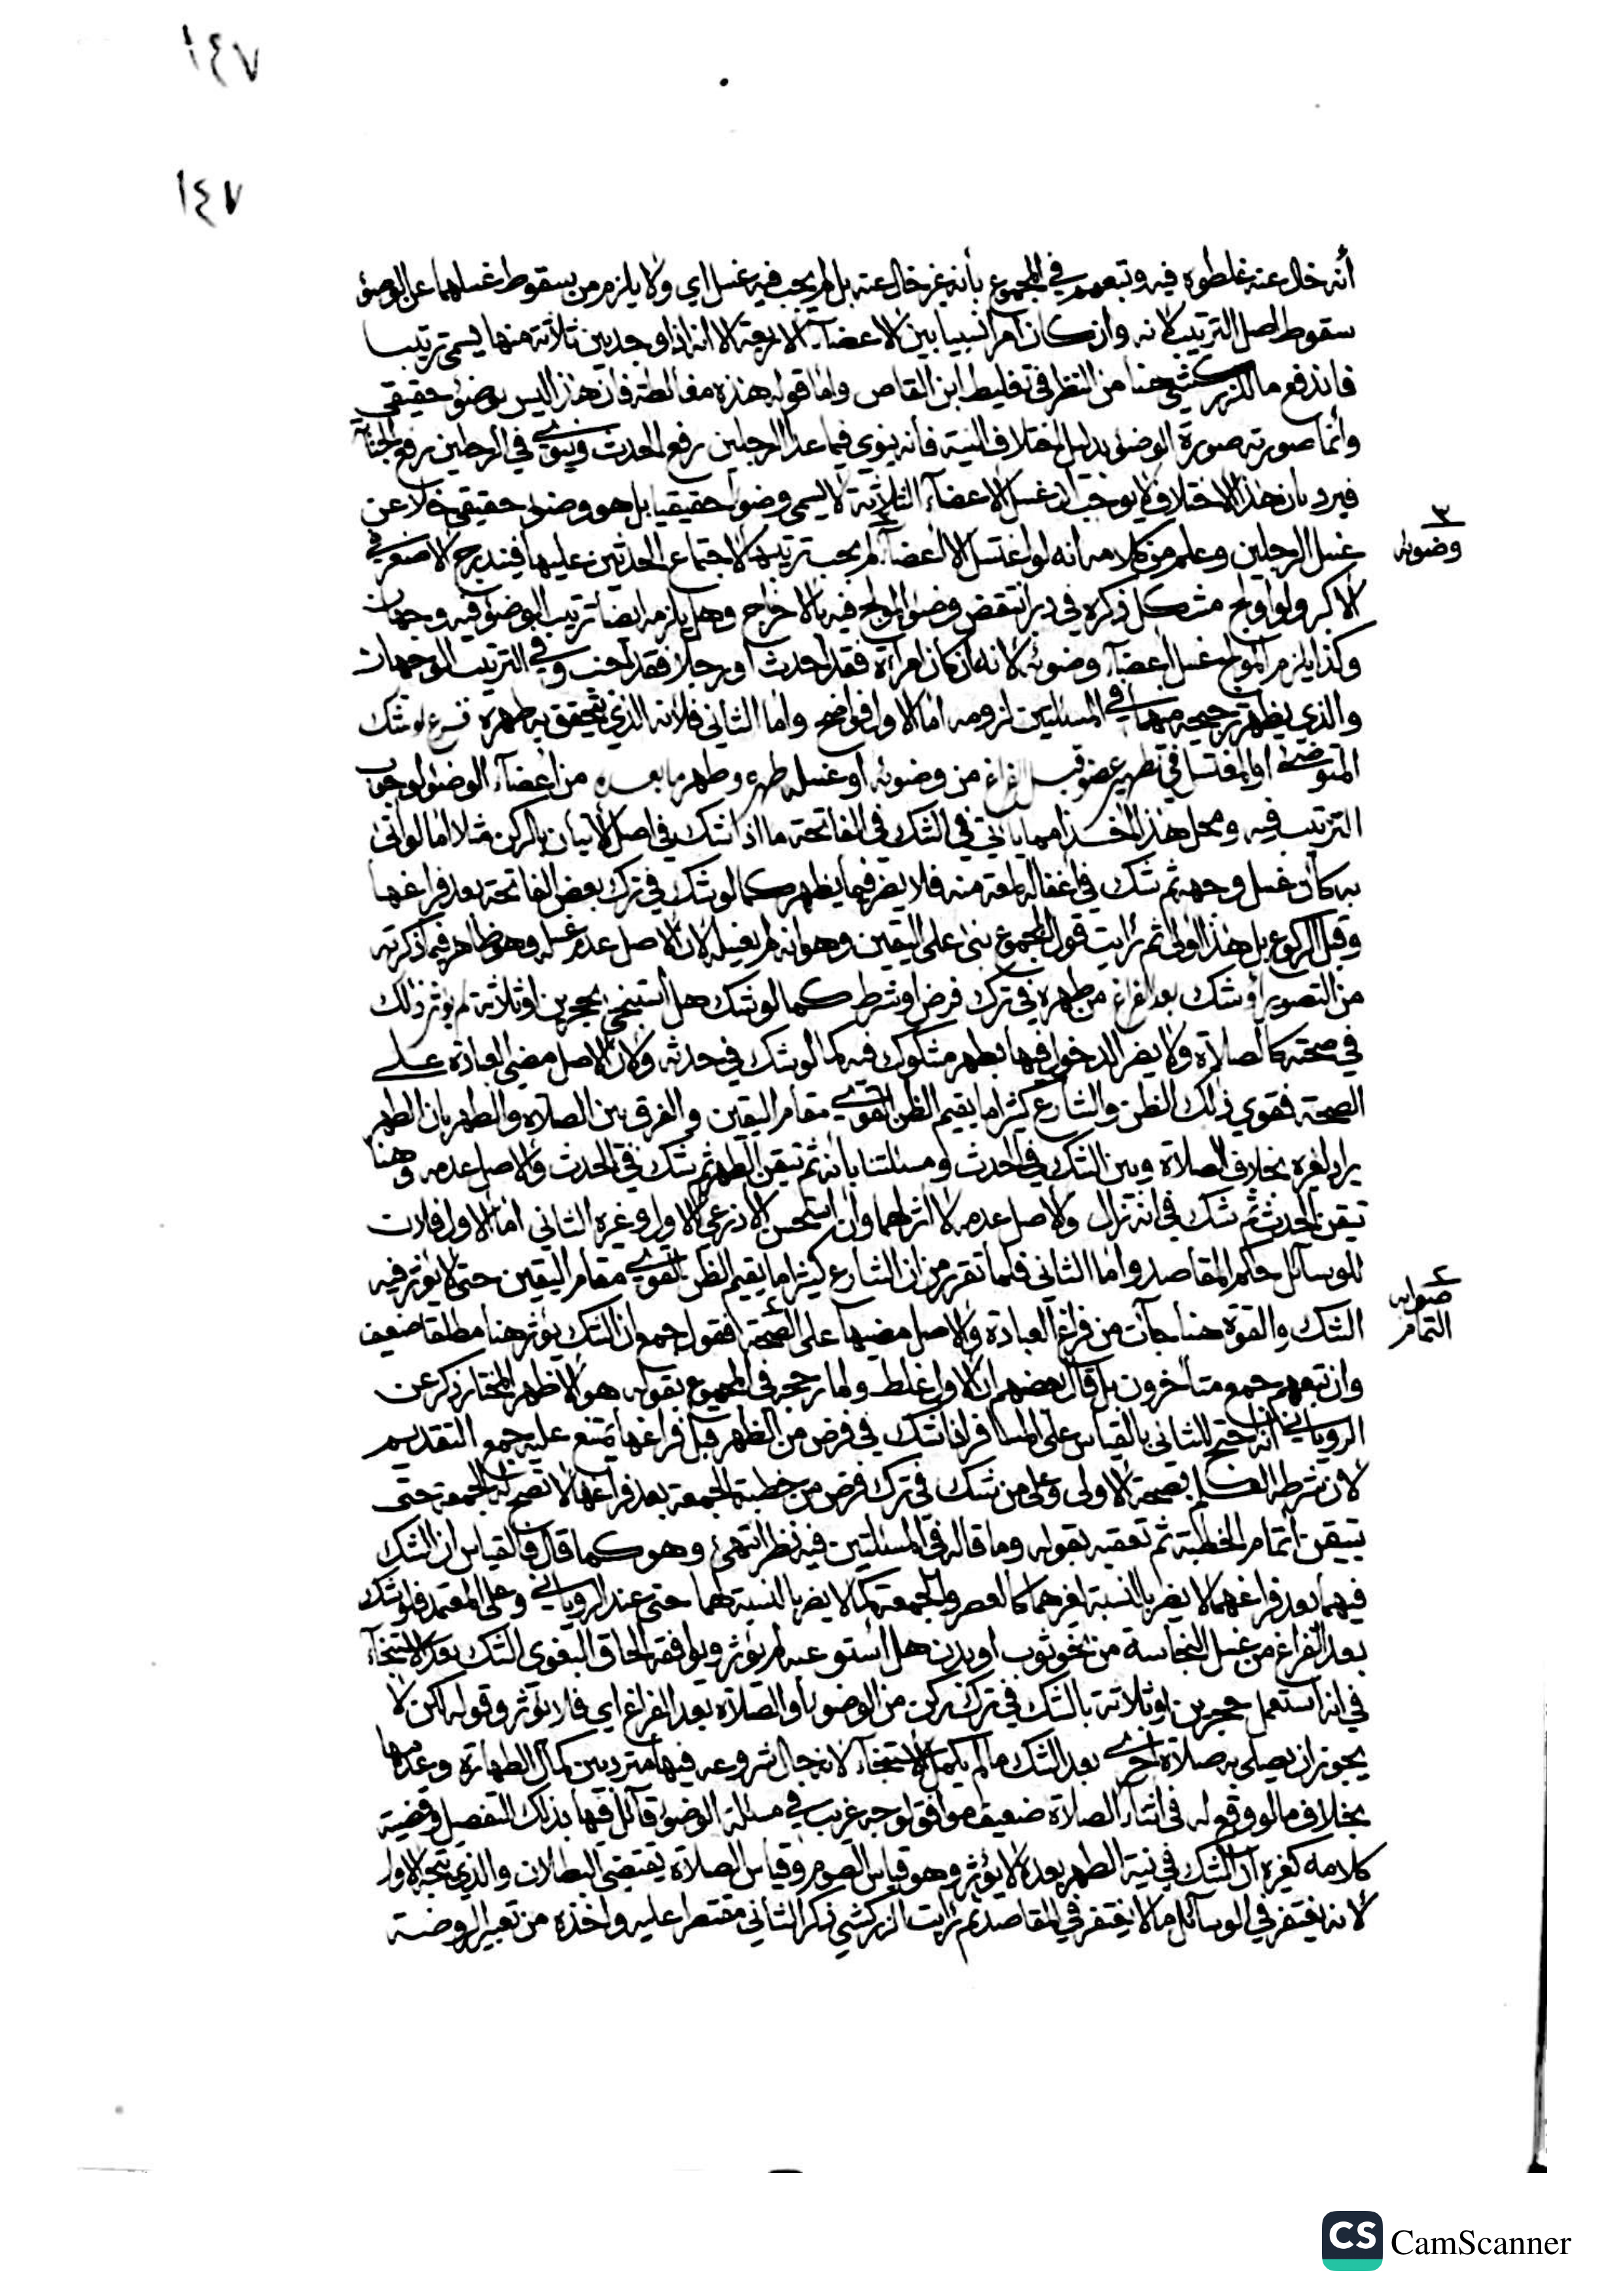 ١٤٧
١٤٧
أنه خال عنه غلطوه فيه وتبعهم في المجموع بأنه غير خال عنه بل لم يجب فيه غسل اي ولا يلزم من سقوط غسلهما عن الوضؤ
سقوط اصل الترتيب لانه وان كان امرا نسبيا بين الاعضآء الاربعة الا انه اذا وجد بين ثلاثة منها يسمى ترتيبا
فاندفع ما للزركشي هنا من النظر في تغليط ابن القاص واما قوله هذه مغالطة فان هذا ليس بوضؤ حقيقي
وانما صورته صورة الوضؤ بدليل اختلاف النية فأنه ينوي فيما عدا الرجلين رفع الحدث وينوي في الرجلين رفع الجنابة
فيرد بان هذا الاختلاف لا يوجب ان غسل الاعضآء الثلاثة لا يسمى وضؤا حقيقيا بل هو وضؤ حقيقي خلا عن
غسل الرجلين وعلم من كلامه انه لو اغتسل الا اعضآء لم يجب ترتيبها لاجتماع الحدثين عليها فيندرج الاصغر في
٣
وضوئه
الاكبر ولو اولج مشكل ذكره في دبر انتقض وضؤ المولج فيه بالاخراج وهل يلزمه ايضا ترتيب الوضؤ فيه وجهان
وكذا يلزم المولج غسل اعضآء وضوئه لانه ان كان امرأة فقد احدث او رجلا فقد اجنب وفي الترتيب الوجهان
والذي يظهر ترجيحه منهما في المسئلتين لزومه اما الاول فواضح واما الثاني فلانه الذي يتحقق به طهره فرع لو شك
المتوضئ او المغتسل في تطهير عضو قبل الفراغ من وضوئه او غسله طهره وطهر ما بعده من اعضآء الوضؤ لوجوب
الترتيب فيه ومحل هذا اخذا مما يأتي في الشك في الفاتحة ما اذا شك في اصل الاتيان بالركن مثلا اما لو اتى
به كأن غسل وجهه ثم شك في اغفاله لمعة منه فلا يضر فيما يظهر كما لو شك في ترك بعض الفاتحة بعد فراغها
وقبل الركوع بل هذا اولى ثم رايت قول المجموع بنى على اليقين وهو انه لم يغسله لان الاصل عدم غسله وهو ظاهر فيما ذكرته
من التصوير او شك بعد الفراغ من طهره في ترك فرض او شرط كما لو شك هل استنجى بحجرين او ثلاثة لم يؤثر ذلك
في صحته كالصلاة ولا يضر الدخول فيها بطهر مشكوك فيه كما لو شك في حدثه ولان الاصل مضي العبادة على
الصحة فقوي ذلك الظن والشارع كثيرا ما يقيم الظن القوي مقام اليقين والفرق بين الصلاة والطهر بان الطهر
يراد لغيره بخلاف الصلاة وبين الشك في الحدث ومسئلتنا بأنه ثم تيقن الطهر ثم شك في الحدث والاصل عدمه وهنا
تيقن الحدث ثم شك في انه زال والاصل عدمه لا اثر لهما وان استحسن الاذرعي الاول وغيره الثاني اما الاول فلان
للوسائل حكم المقاصد واما الثاني فلما تقرر من ان الشارع كثيرا ما يقيم الظن القوي مقام اليقين حتى لا يؤثر فيه
٤
صوابه
التمام
الشك والقوة هنا جآت من فراغ العبادة والاصل مضيها على الصحة فقول جمع ان الشك يؤثر هنا مطلقا ضعيف
وان تبعهم جمع متأخرون بل قال بعضهم ان الاول غلط ولما رجحه في المجموع بقوله هو الاظهر المختار ذكر عن
الروياني انه احتج للثاني بالقياس على المسافر اذا شك في فرض من الظهر قبل فراغها يمتنع عليه جمع التقديم
لان شرطه العلم بصحة الاولى وعلى من شك في ترك فرض من خطبة الجمعة بعد فراغها لا تصح له الجمعة حتى
يتيقن اتمام الخطبة ثم تعقبه بقوله وما قاله في المسئلتين فيه نظر انتهى وهو كما قال فالقياس ان الشك
فيهما بعد فراغهما لا يضر بالنسبة لغيرهما كالعصر والجمعة كما لا يضر بالنسبة لهما حتى عند الروياني وعلى المعتمد فلو شك
بعد الفراغ من غسل النجاسة من نحو ثوب او بدن هل استوعبه لم يؤثر ويوافقه الحاق البغوي الشك بعد الاستنجآء
في انه استعمل حجرين او ثلاثة بالشك في ترك ركن من الوضؤ او الصلاة بعد الفراغ اي فلا يؤثر وقوله لكن لا
يجوز ان يصلي به صلاة اخرى بعد الشك ما لم يكمل الاستنجآء لانه حال شروعه فيها متردد بين كمال الطهارة وعدمها
بخلاف ما لو وقع له في اثناء الصلاة ضعيف موافق لوجه غريب في مسئلة الوضؤ قائل فيها بذلك التفصيل وقضية
كلامه كغيره ان الشك في نية الطهر بعده لا يؤثر وهو قياس الصوم وقياس الصلاة يقتضي البطلان والذي يتجه الاول
لانه يغتفر في الوسائل ما لا يغتفر في المقاصد ثم رايت الزركشي ذكر الثاني مقتصرا عليه واخذه من تعبير الروضة
CS CamScanner